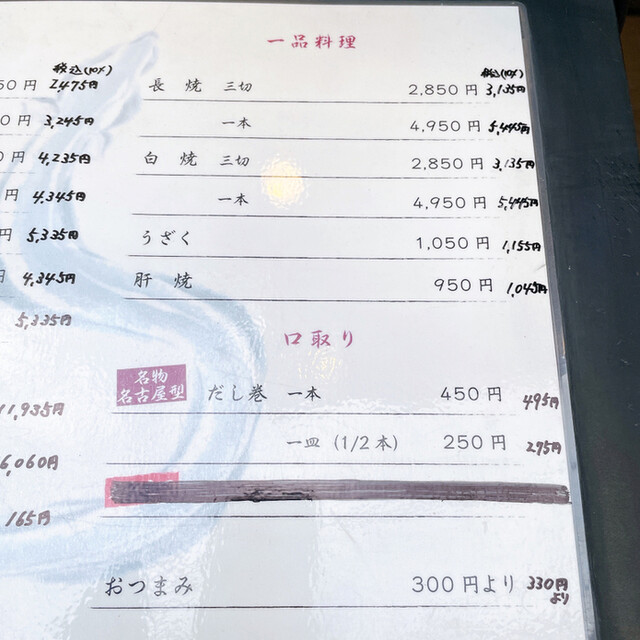 税込(10%)
2,475円
円 3,245円
円 4,235円
円 4,345円
円 5,335円
4,345円
5,335円
11,935円
6,060円
165円
一品料理
税込(10%)
長焼 三切 2,850円 3,135円
一本 4,950円 5,445円
白焼 三切 2,850円 3,135円
一本 4,950円 5,445円
うざく 1,050円 1,155円
肝焼 950円 1,045円
口取り
名物
名古屋型 だし巻 一本 450円 495円
一皿 (1/2本) 250円 275円
おつまみ 300円より 330円
より